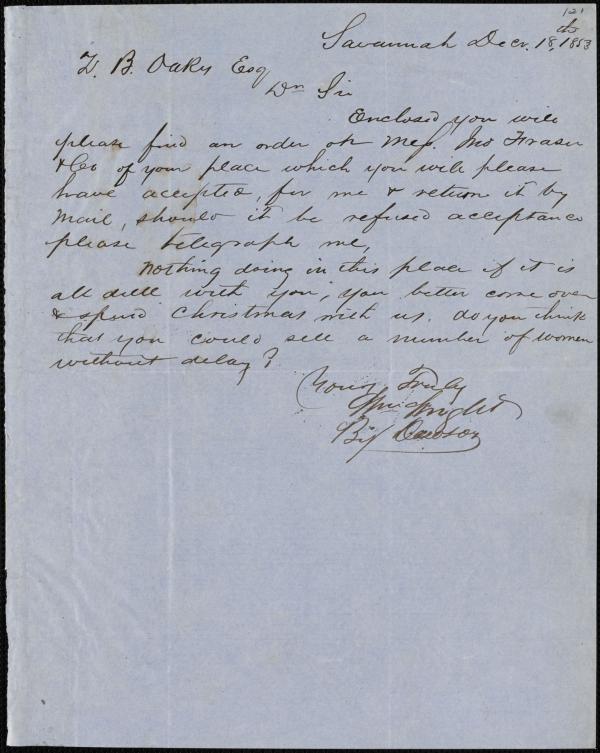 121
Savannah Decr. 18th, 1853
Z. B. Oakes Esq
Dr Sir
Enclosed you will
please find an order on Mess. Jno Fraser
& Co of your place which you will please
have accepted, for me & return it by
mail, should it be refused acceptance
please telegraph me,
Nothing doing in this place if it is
all dull with you, you better come over
& spend Christmas with us. do you think
that you could sell a number of women
without delay?
Yours Truly
Wm Wright
By Dawson